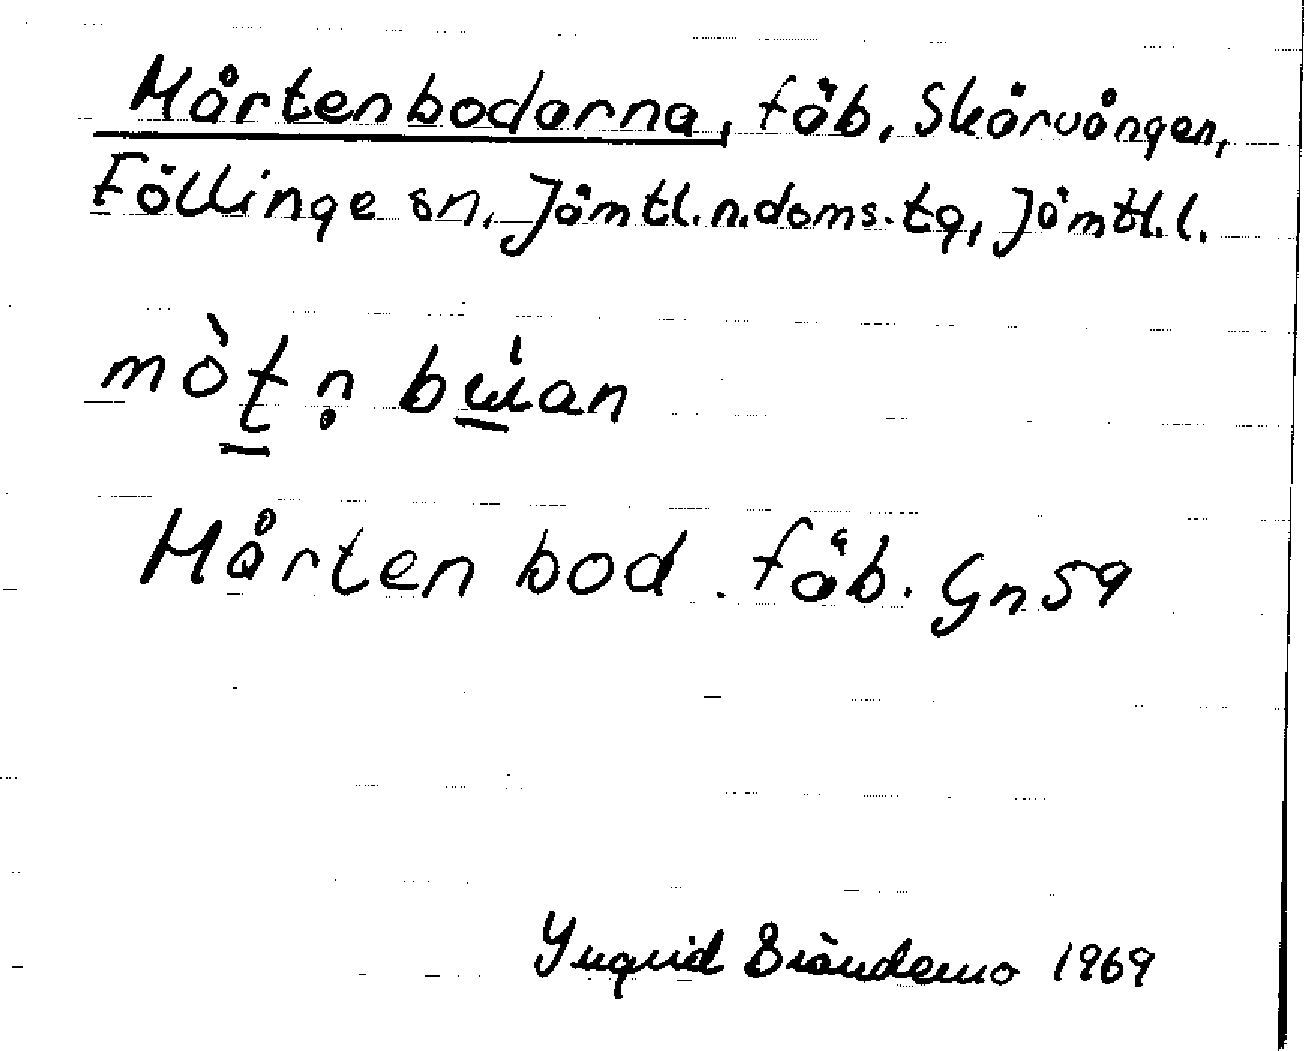 Mårtenbodarna, fäb, Skärvången,
Föllinge sn, Jämtl.n.doms.tg, Jämtl.l.
mòt̲ṇ bɯ̲́an
Mårten bod . fäb. Gn59
Yngvid Brändemo 1969